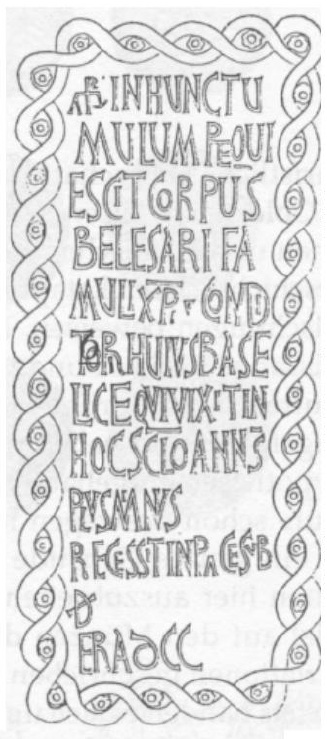 INHUNCTU
MULUMREQUI
ESCITCORPUS
BELESARIFA
MULIXPI CONDI
TORHUIUSBASE
LICEQVIVIXITIN
HOCSCLOANNS
PLVSMNVS
RECESSITINPACESVB
D
ERADCC